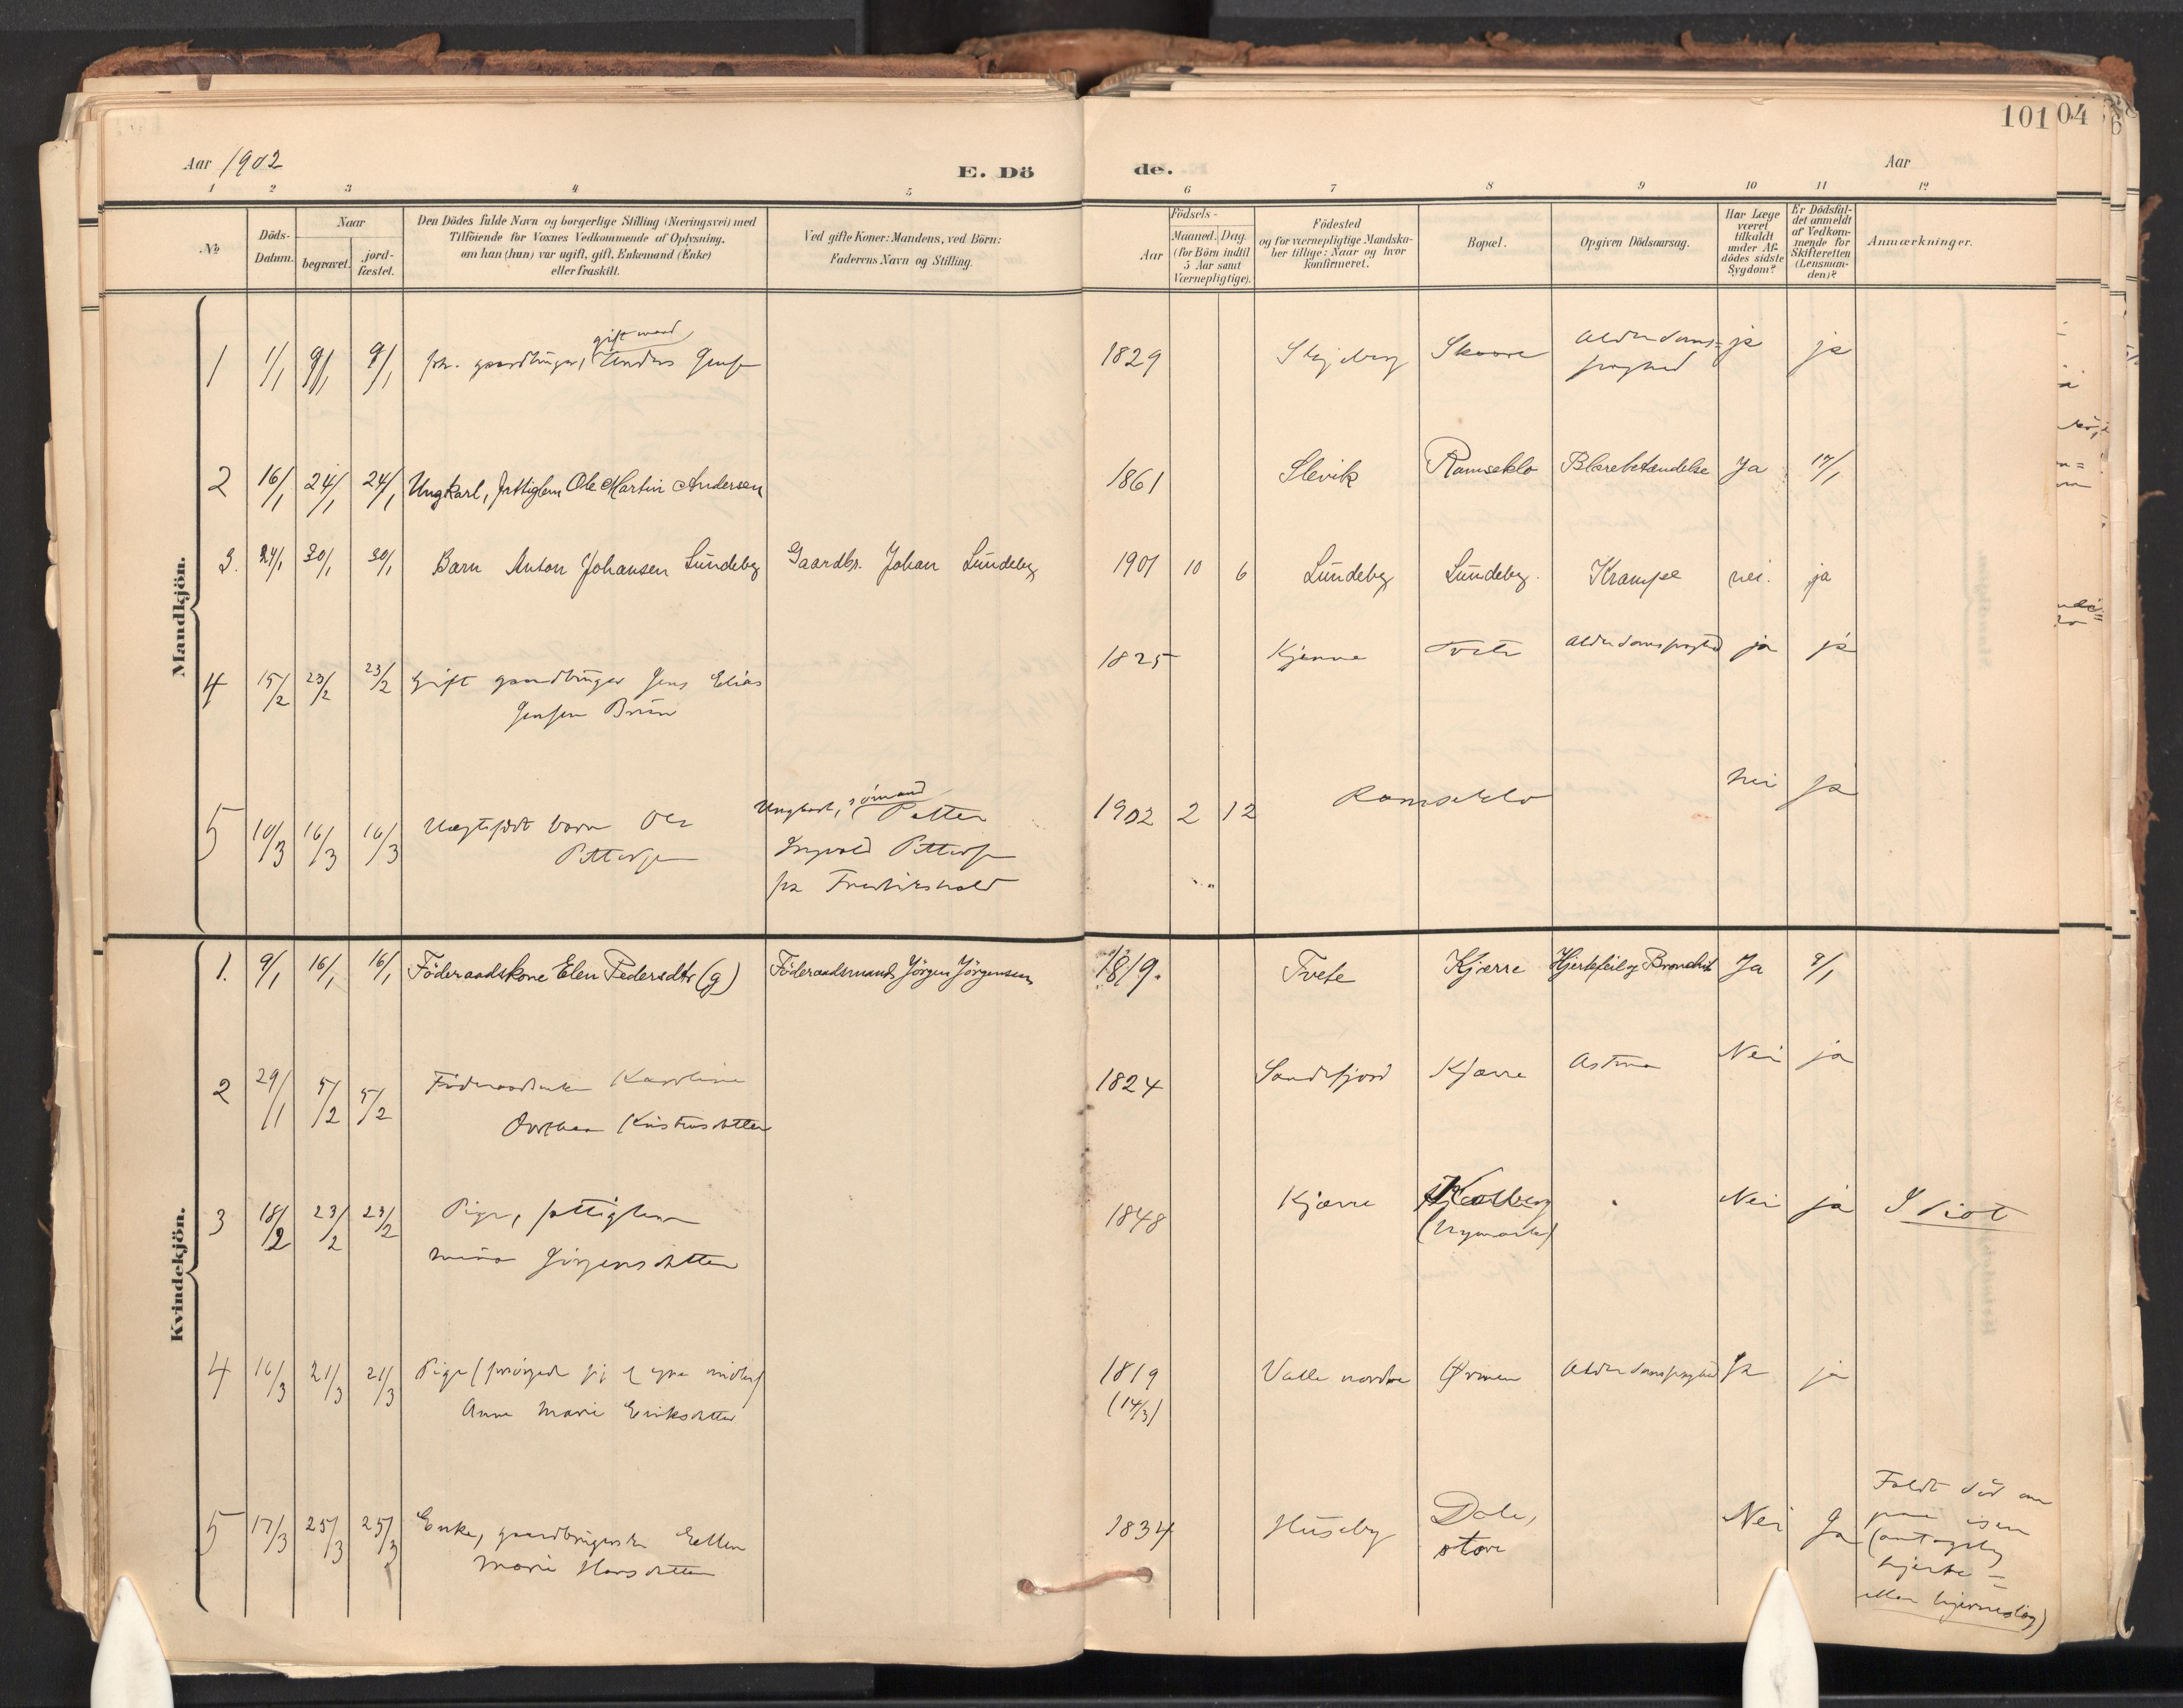 101 04
Aar 1902
E. Dö
de.
Aar
1 2 3 4 5 6 7 8 9 10 11 12
No.
Döds-
Datum.
Naar
begravet.
jord-
fæstet.
Den Dödes fulde Navn og borgerlige Stilling (Næringsvei) med
Tilföiende for Voxnes Vedkommende af Oplysning,
om han (hun) var ugift, gift, Enkemand (Enke)
eller fraskilt.
Ved gifte Koner: Mandens, ved Börn:
Faderens Navn og Stilling.
Födsels-
Aar
Maaned.
Dag
(for Börn indtil
5 Aar samt
Værnepligtige).
Födested
og for værnepligtige Mandska-
ber tillige: Naar og hvor
konfirmeret.
Bopæl.
Opgiven Dödsaarsag.
Har Læge
været
tilkaldt
under Af-
dödes sidste
Sygdom?
Er Dödsfal-
det anmeldt
af Vedkom-
mende for
Skifteretten
(Lensman-
den)?
Anmærkninger.
Mandkjön.
gift mand
1 1/1 9/1 9/1 gaardbruger, Anders Jensen 1829 Skjeberg Skaare Alderdoms= ja ja
svaghed
2 16/1 24/1 24/1 Ungkarl, fattiglem Ole Martin Andersen 1861 Slevik Ramseklo Blærebetændelse Ja 17/1
3. 24/1 30/1 30/1 Barn Anton Johansen Lundeby Gaardbr. Johan Lundeby 1901 10 6 Lundeby Lundeby. Krampe nei. ja
4 15/2 23/2 23/2 Gift gaardbruger Jens Elias 1825 Kjærre Tvete Alderdomssvaghed ja ja
Jensen Brun
5 10/3 16/3 16/3 Uægtefødt barn Ole Ungkarl, sømand Petter 1902 2 12 Ramseklo nei ja
Pettersen Ingvald Pettersen
fra Fredrikshald
Kvindekjön.
1. 9/1 16/1 16/1 Föderaadskone Elen Pedersdtr (g) Föderaadsmand Jörgen Jörgensen 1819. Tvete Kjærre Hjertefeil og Bronchit Ja 9/1
2 29/1 5/2 5/2 Föderaadsenke Karoline 1824 Sandefjord Kjærre Astma Nei ja
Dorthea Kristensdatter
3 18/2 23/2 23/2 Pige, fattiglem 1848 Kjærre Karlberg Nei ja Idiot
Mina Jörgensdatter (Nymark)
4 16/3 21/3 21/3 Pige (forsörgede sig af egne midler) 1819 Valle nordre Ørmen Alderdomssvaghed ja ja
Anne Marie Eriksdatter (14/3)
5 17/3 25/3 25/3 Enke, gaardbrugerske Ellen 1834 Huseby Dale, Nei Ja Faldt död om
Marie Hansdatter store paa isen
(antagelig
hjerte=
eller hjerneslag)